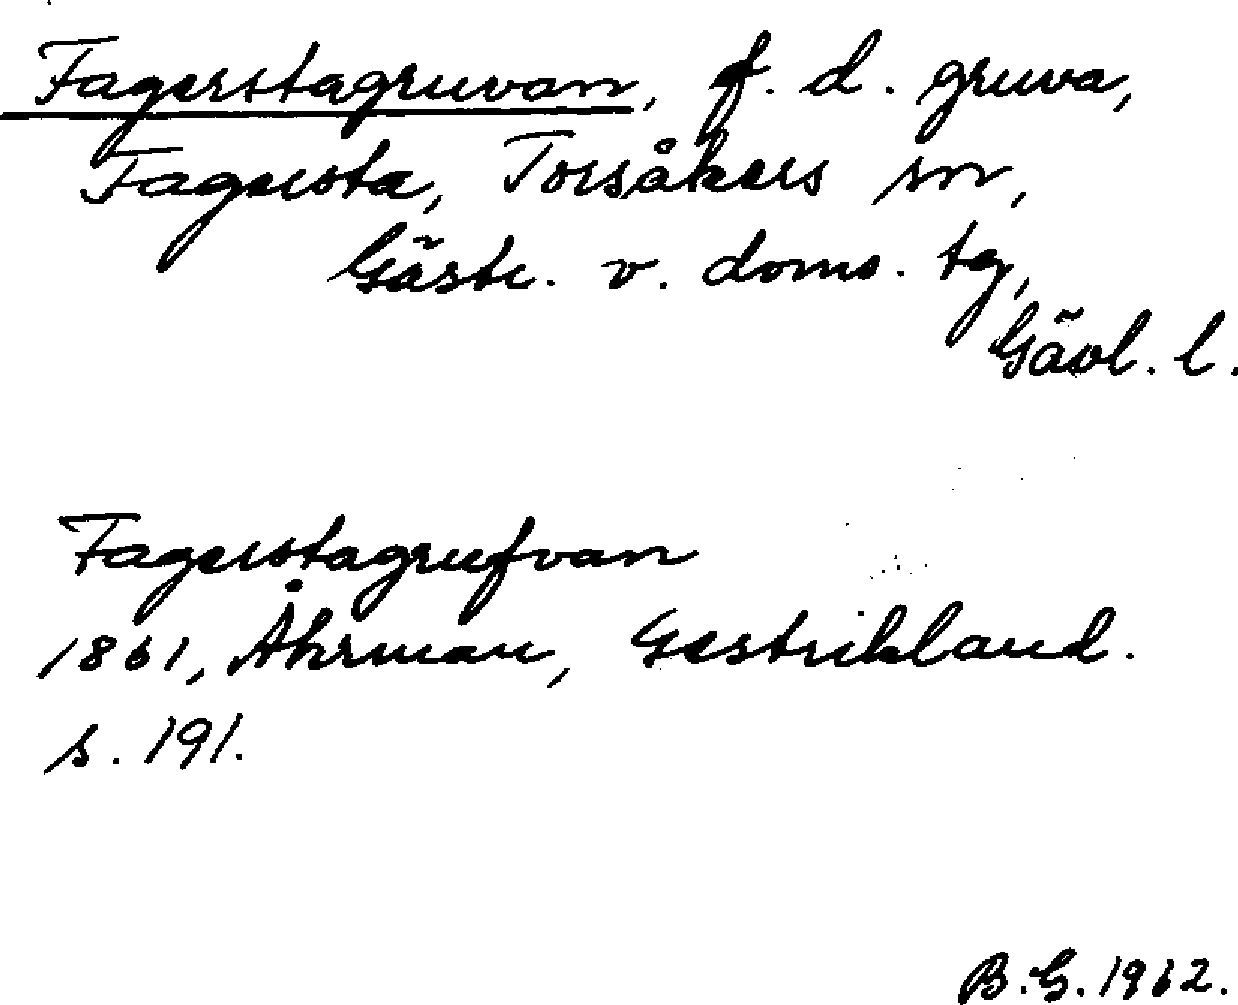 Fagerstagruvan, f. d. gruva,
Fagersta, Torsåkers sn,
Gästr. v. doms. tg,
Gävl. l.
Fagerstagrufvan
1861, Åhrman, Gestrikland.
s. 191.
B.G. 1962.